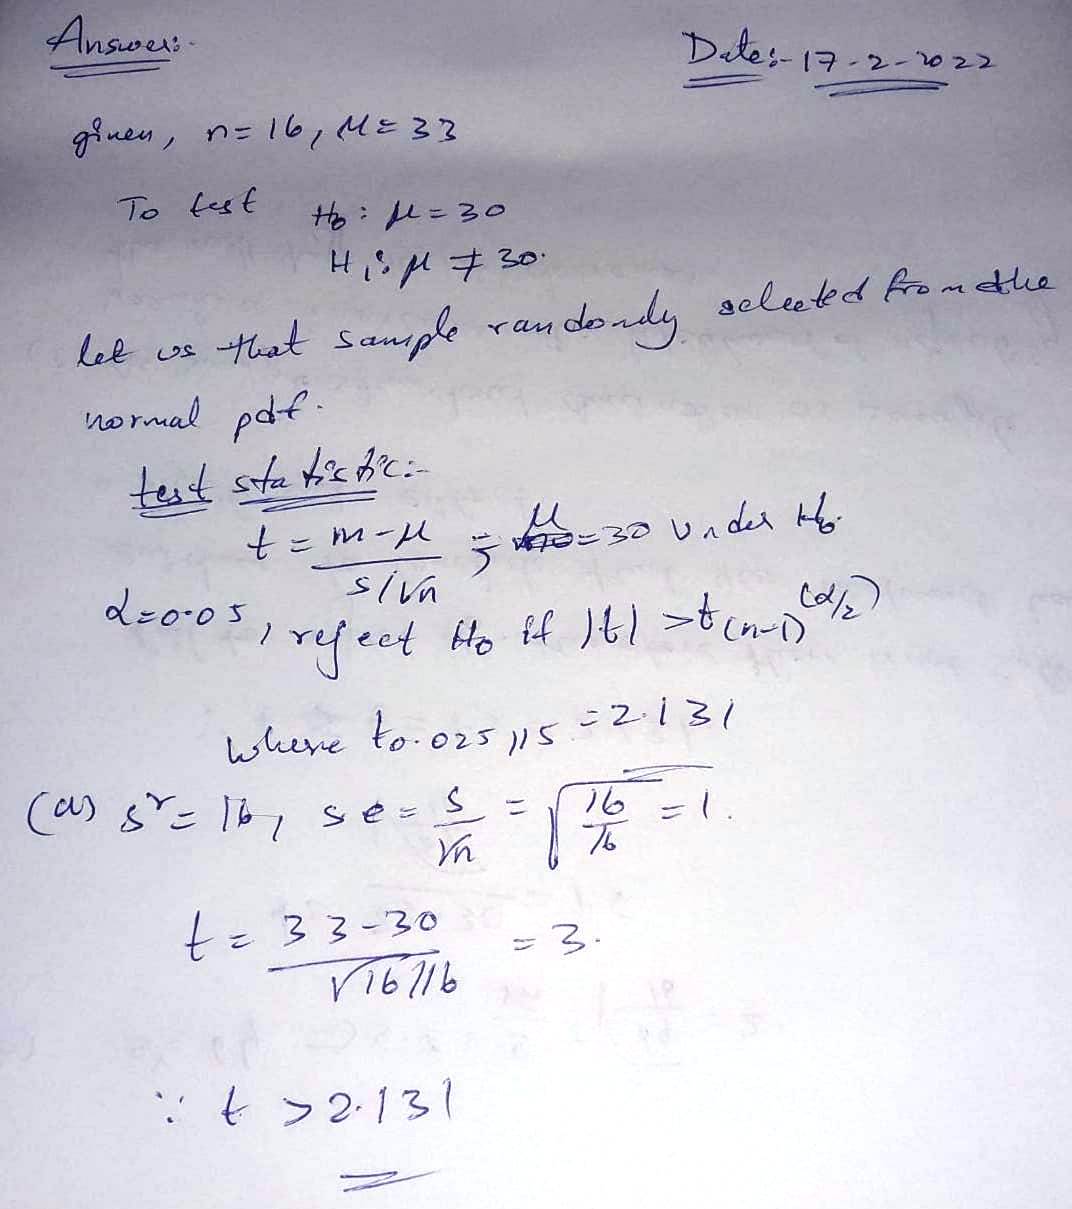 Answer:-
Date:- 17-2-2022
given, n=16, M=33
To test H₀: μ=30
H₁: μ ≠ 30.
let us that sample randomly selected from the
normal pdf.
test statistic:-
t = m-μ / s/√n ; μ = 30 under H₀.
α=0.05, reject H₀ if |t| > t(n-1)(α/2)
where t0.025,15 = 2.131
(a) s² = 16, se = s/√n = √16/16 = 1.
t = 33-30 / √16/16 = 3.
∵ t > 2.131